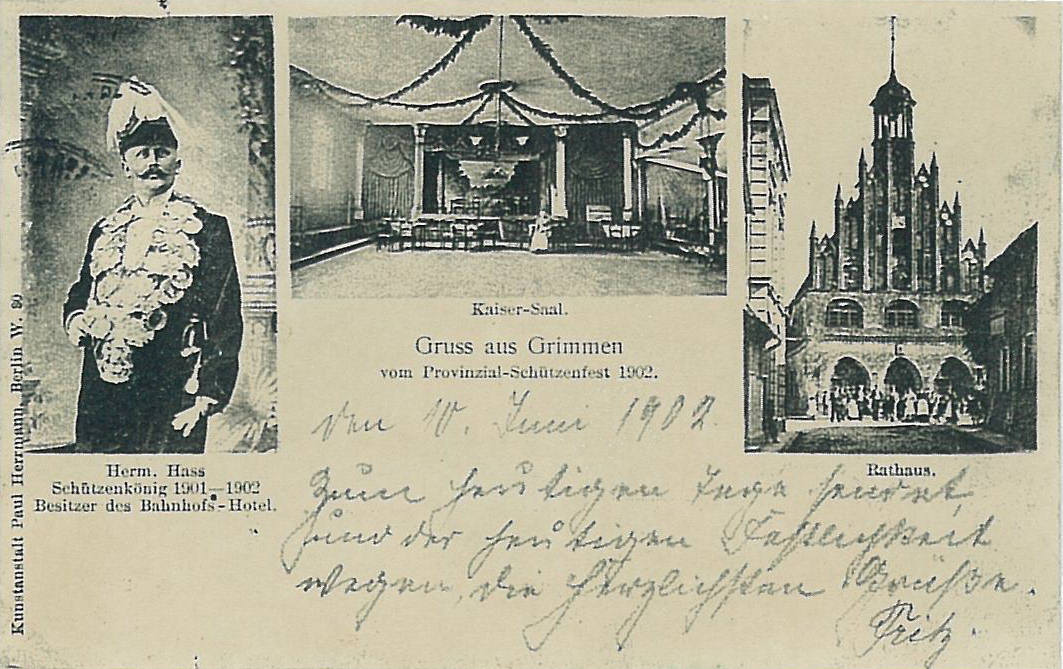 Kaiser-Saal.
Gruss aus Grimmen
vom Provinzial-Schützenfest 1902.
Herm. Hass
Schützenkönig 1901—1902
Besitzer des Bahnhofs-Hotel.
Rathaus.
Kunstanstalt Paul Herrmann, Berlin W. 30
den 10. Juni 1902.
Zum heutigen Tage sendet,
und der heutigen Festlichkeit
wegen, die herzlichsten Grüße.
Fritz.